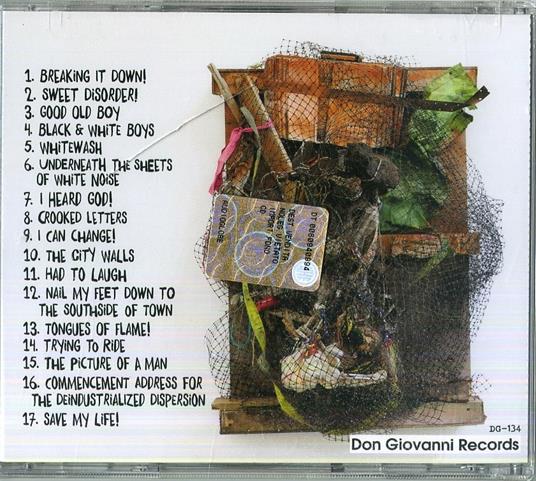 1. BREAKING IT DOWN!
2. SWEET DISORDER!
3. GOOD OLD BOY
4. BLACK & WHITE BOYS
5. WHITEWASH
6. UNDERNEATH THE SHEETS
OF WHITE NOISE
7. I HEARD GOD!
8. CROOKED LETTERS
9. I CAN CHANGE!
10. THE CITY WALLS
11. HAD TO LAUGH
12. NAIL MY FEET DOWN TO
THE SOUTHSIDE OF TOWN
13. TONGUES OF FLAME!
14. TRYING TO RIDE
15. THE PICTURE OF A MAN
16. COMMENCEMENT ADDRESS FOR
THE DEINDUSTRIALIZED DISPERSION
17. SAVE MY LIFE!
DG-134
Don Giovanni Records